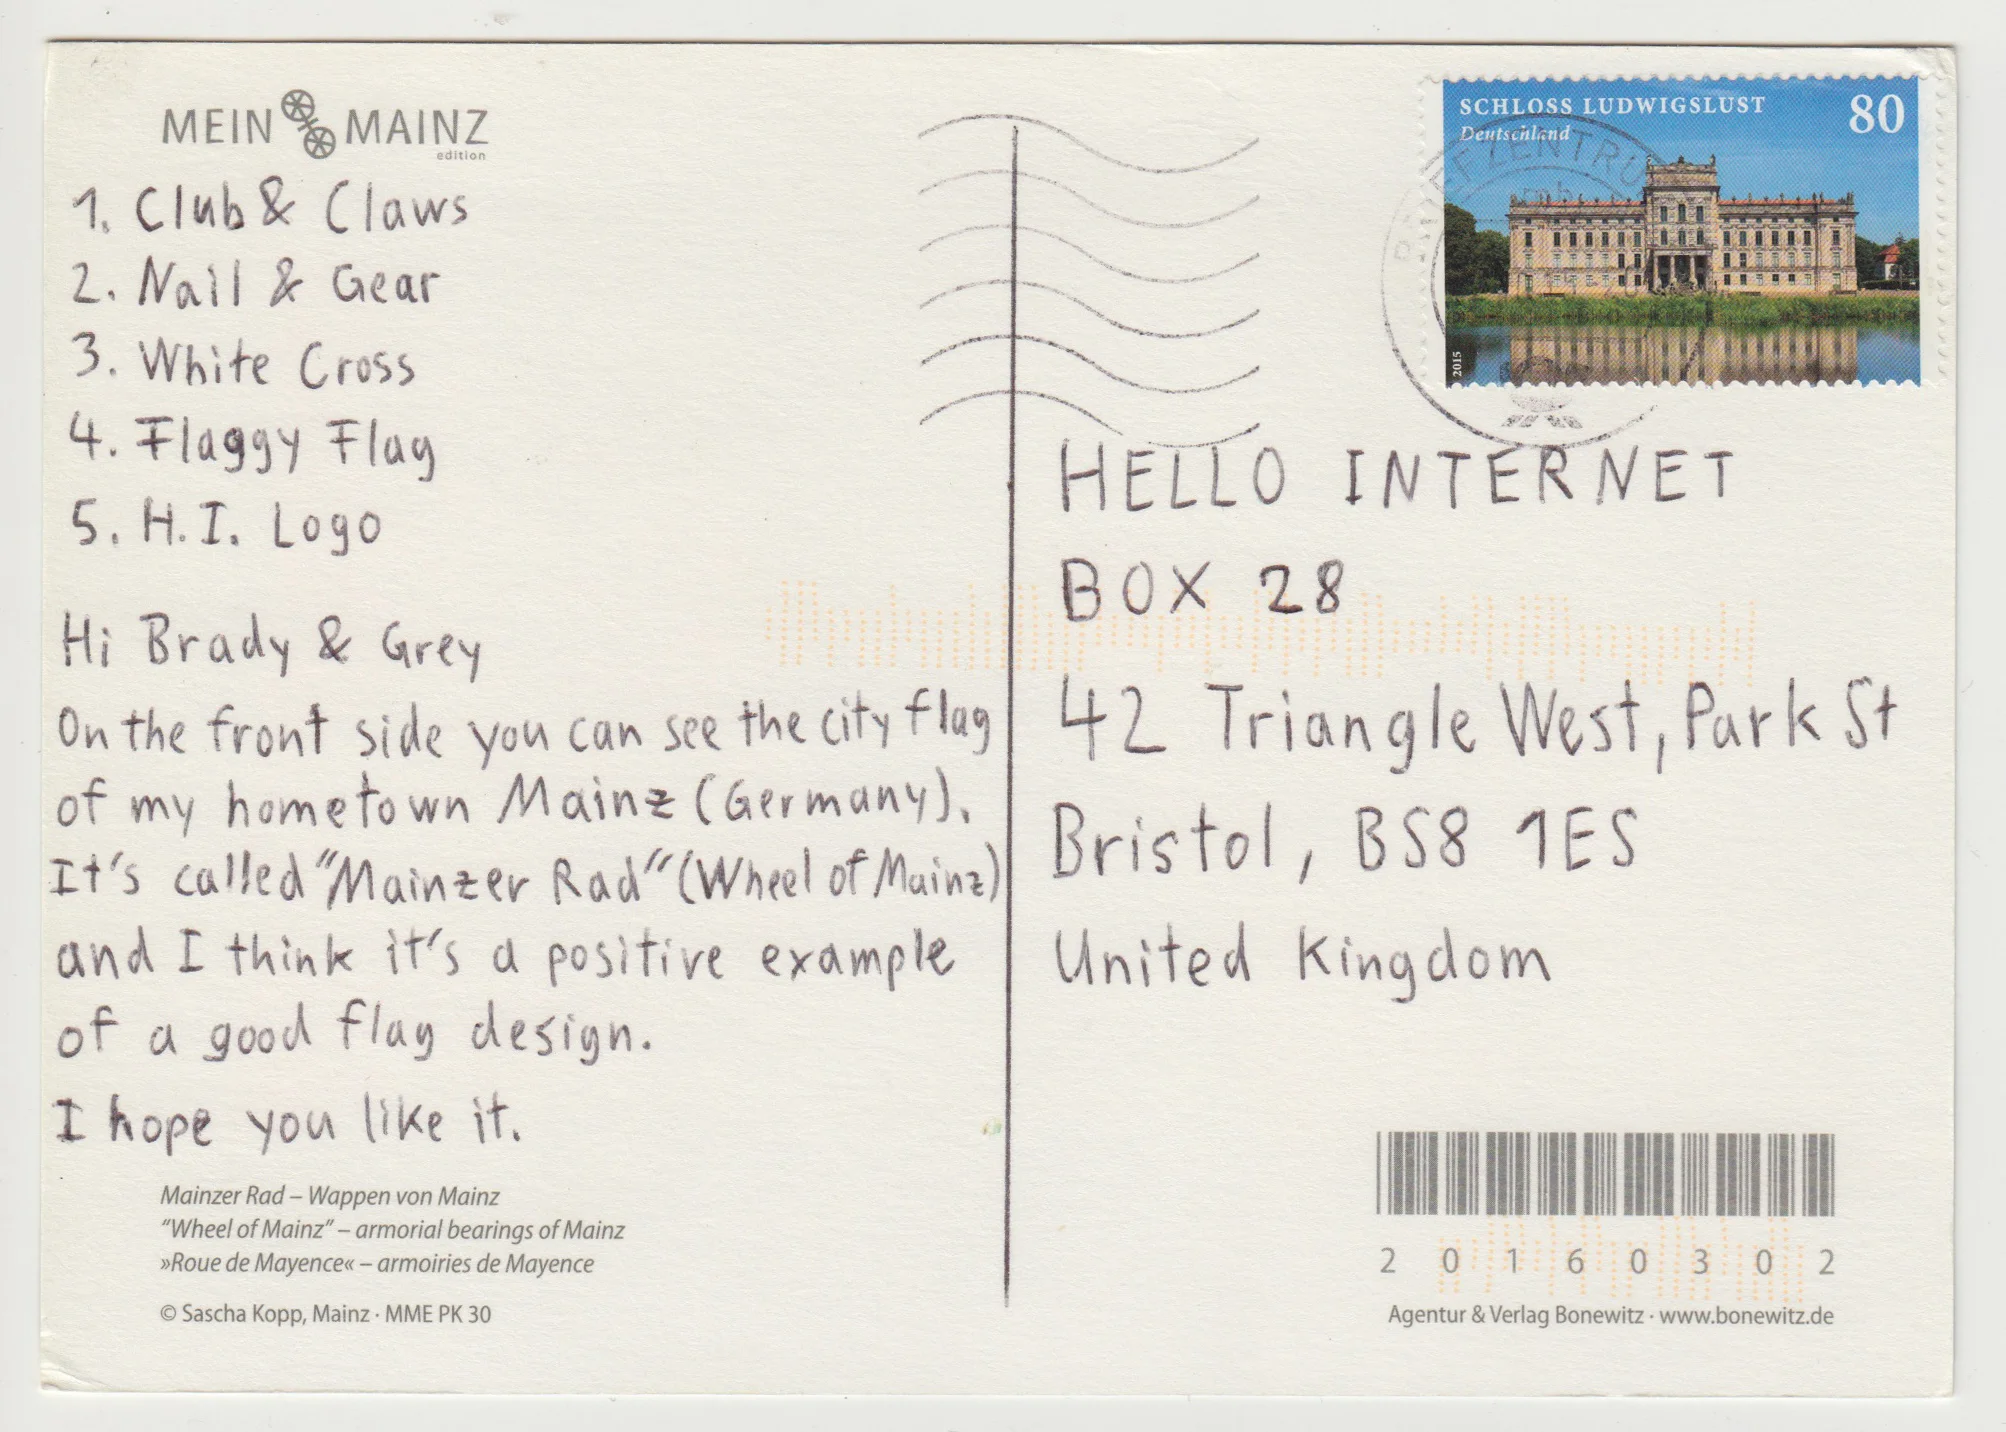 MEIN MAINZ
edition
1. Club & Claws
2. Nail & Gear
3. White Cross
4. Flaggy Flag
5. H.I. Logo
Hi Brady & Grey
On the front side you can see the city flag
of my hometown Mainz (Germany).
It's called "Mainzer Rad" (Wheel of Mainz)
and I think it's a positive example
of a good flag design.
I hope you like it.
Mainzer Rad – Wappen von Mainz
“Wheel of Mainz” – armorial bearings of Mainz
»Roue de Mayence« – armoiries de Mayence
© Sascha Kopp, Mainz · MME PK 30
SCHLOSS LUDWIGSLUST 80
Deutschland
2015
BRIEFZENTRU
HELLO INTERNET
BOX 28
42 Triangle West, Park St
Bristol, BS8 1ES
United Kingdom
2 0 1 6 0 3 0 2
Agentur & Verlag Bonewitz · www.bonewitz.de